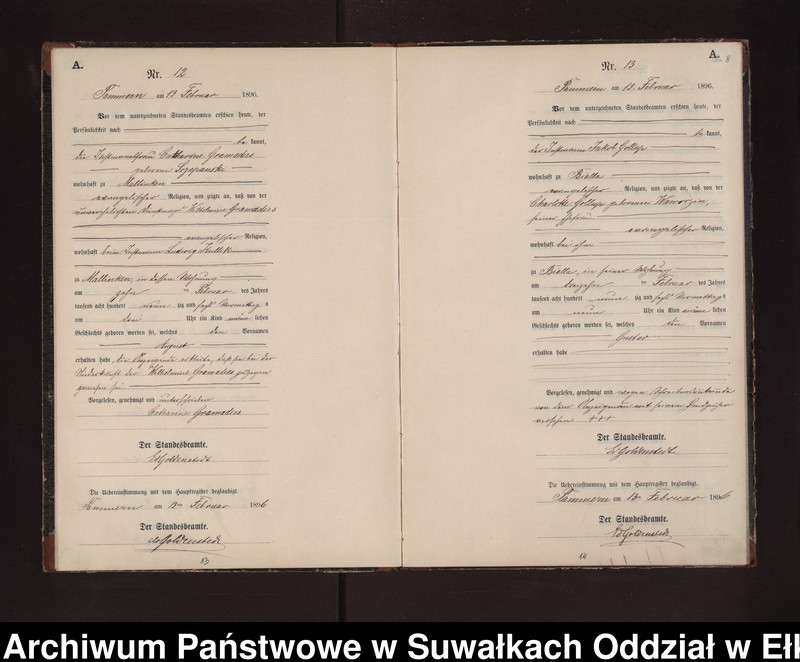 A.
Nr. 12
am 13 Februar 1896.
Vor dem unterzeichneten Standesbeamten erschien heute, der
Persönlichkeit nach
be kannt,
die Instmannsfrau Catharine Gramadies
geborene
wohnhaft zu Mallinken
evangelischer Religion, und zeigte an, daß von der
unverehelichten Wilhelmine Gramadies
evangelischer Religion,
wohnhaft beim Instmann Ludwig
zu Mallinken, in dessen Wohnung
am zehn ten Februar des Jahres
tausend acht hundert neun zig und sechs Vormittags
um drei Uhr ein Kind männ lichen
Geschlechts geboren worden sei, welches den Vornamen
August
erhalten habe, die Anzeigende erklärte, daß sie bei der
Niederkunft der Wilhelmine Gramadies zugegen
gewesen sei
Vorgelesen, genehmigt und unterschrieben
Catharine Gramadies
Der Standesbeamte.
Goldenstedt
Die Uebereinstimmung mit dem Hauptregister beglaubigt.
am 13 Februar 1896
Der Standesbeamte.
Goldenstedt
13
A.
8
Nr. 13
am 18. Februar 1896.
Vor dem unterzeichneten Standesbeamten erschien heute, der
Persönlichkeit nach
be kannt,
der Instmann Jakob Gollop
wohnhaft zu Bialla
evangelischer Religion, und zeigte an, daß von der
Charlotte Gollop geborenen
seiner Ehefrau
evangelischer Religion,
wohnhaft bei ihm
zu Bialla, in seiner Wohnung
am ten Februar des Jahres
tausend acht hundert neun zig und sechs Vormittags
um neun Uhr ein Kind männ lichen
Geschlechts geboren worden sei, welches den Vornamen
Gustav
erhalten habe
Vorgelesen, genehmigt und wegen Schreibensunkunde
von dem Anzeigenden mit seinem Handzeichen
versehen +++
Der Standesbeamte.
Goldenstedt
Die Uebereinstimmung mit dem Hauptregister beglaubigt.
am 18 Februar 1896
Der Standesbeamte.
Goldenstedt
14
Archiwum Państwowe w Suwałkach Oddział w Ełk